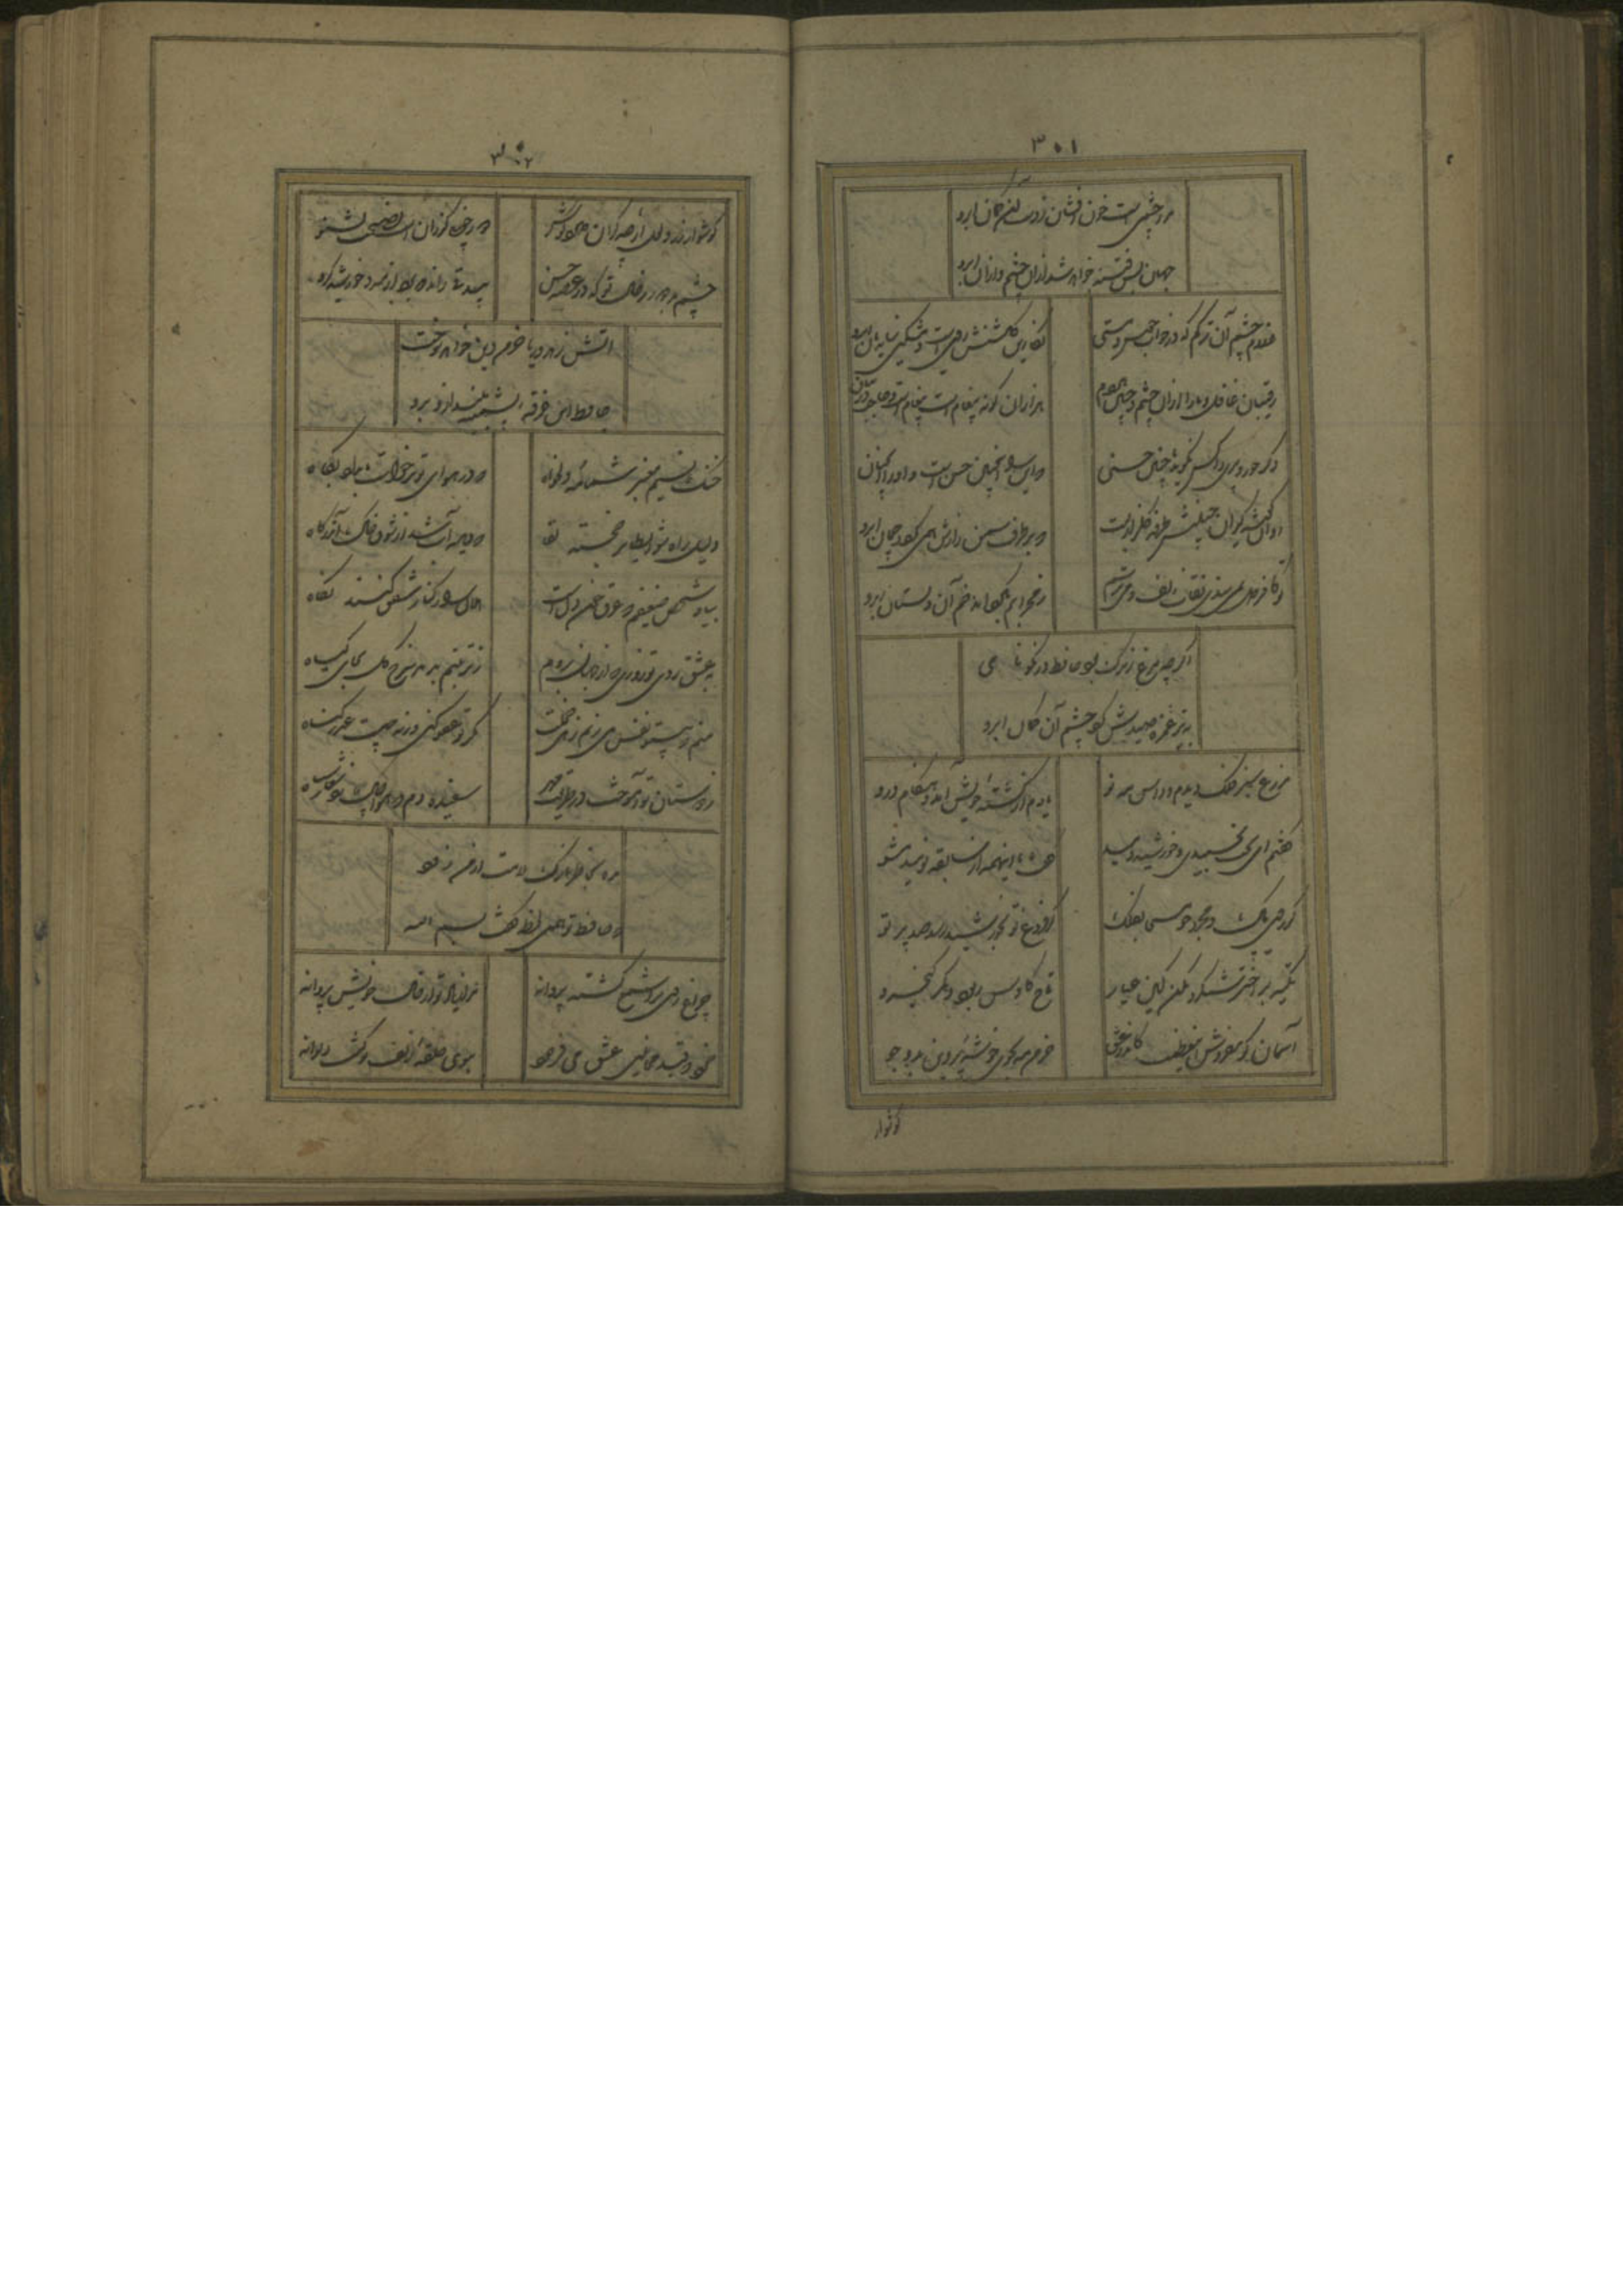 ۳۰۱
مرا چشمی است خون افشان ز دست آن کمان ابرو
جهان بس فتنه خواهد شد از آن چشم و از آن ابرو
غلام چشم آن ترکم که در خواب خوش مستی
نگارین گلشنش روی است و مشکین سایبان ابرو
رقیبان غافل و ما را از آن چشم و جبین هر دم
هزاران گونه پیغام است و حاجب در میان ابرو
دگر حور و پری را کس نگوید با چنین حسنی
که این را اینچنین چشم است و آنرا آنچنان ابرو
روان گوشه گیران را جبینش طرفه گلزاریست
که بر طرف سمن زارش همی گردد چمان ابرو
تو کافر دل نمی بندی نقاب زلف و می ترسم
که محرابم بگرداند خم آن دلستان ابرو
اگر چه مرغ زیرک بود حافظ در هواداری
به تیر غمزه صیدش کرد چشم آن کمان ابرو
مزرع سبز فلک دیدم و داس مه نو
یادم از کشته خویش آمد و هنگام درو
گفتم ای بخت بخسبیدی و خورشید دمید
گفت با اینهمه از سابقه نومید مشو
گر روی پاک و مجرد چو مسیحا بفلک
از فروغ تو بخورشید رسد صد پرتو
تکیه بر اختر شبگرد مکن کاین عیار
تاج کاوس ربود و کمر کیخسرو
آسمان گو مفروش این عظمت کاندر عشق
خرمن مه بجوی خوشه پروین بدو جو
گوشوار
۳۰۲
گوشوار زر و لعل ار چه گران دارد گوش
دور خوبی گذران است نصیحت بشنو
چشم بد دور ز خال تو که در عرصه حسن
بیدقی راند که برد از مه و خورشید گرو
آتش زهد و ریا خرمن دین خواهد سوخت
حافظ این خرقه پشمینه بینداز و برو
خنک نسیم معنبر شمامه دلخواه
که در هوای تو برخواست بامداد پگاه
دلیل راه شو ای طایر خجسته لقا
که دیده آب شد از شوق خاک آن درگاه
بیاد شخص نحیفم که غرق خون دل است
هلال را ز کنار شفق کنند نگاه
به عشق روی تو روزی که از جهان بروم
ز تربتم بدمد سرخ گل بجای گیاه
منم که بیتو نفس می زنم زهی خجلت
مگر تو عفو کنی ورنه چیست عذر گناه
ز دوستان تو آموخت در طریقت مهر
سفیده دم که هوا چاک زد شعار سیاه
مده بخاطر نازک ملالت از من زود
که حافظ تو همین لحظه گفت بسم الله
چراغ روی ترا شمع گشته پروانه
مرا ز خال تو از حال خویش پروا نه
خرد که قید مجانین عشق می فرمود
ببوی حلقه زلف تو گشت دیوانه